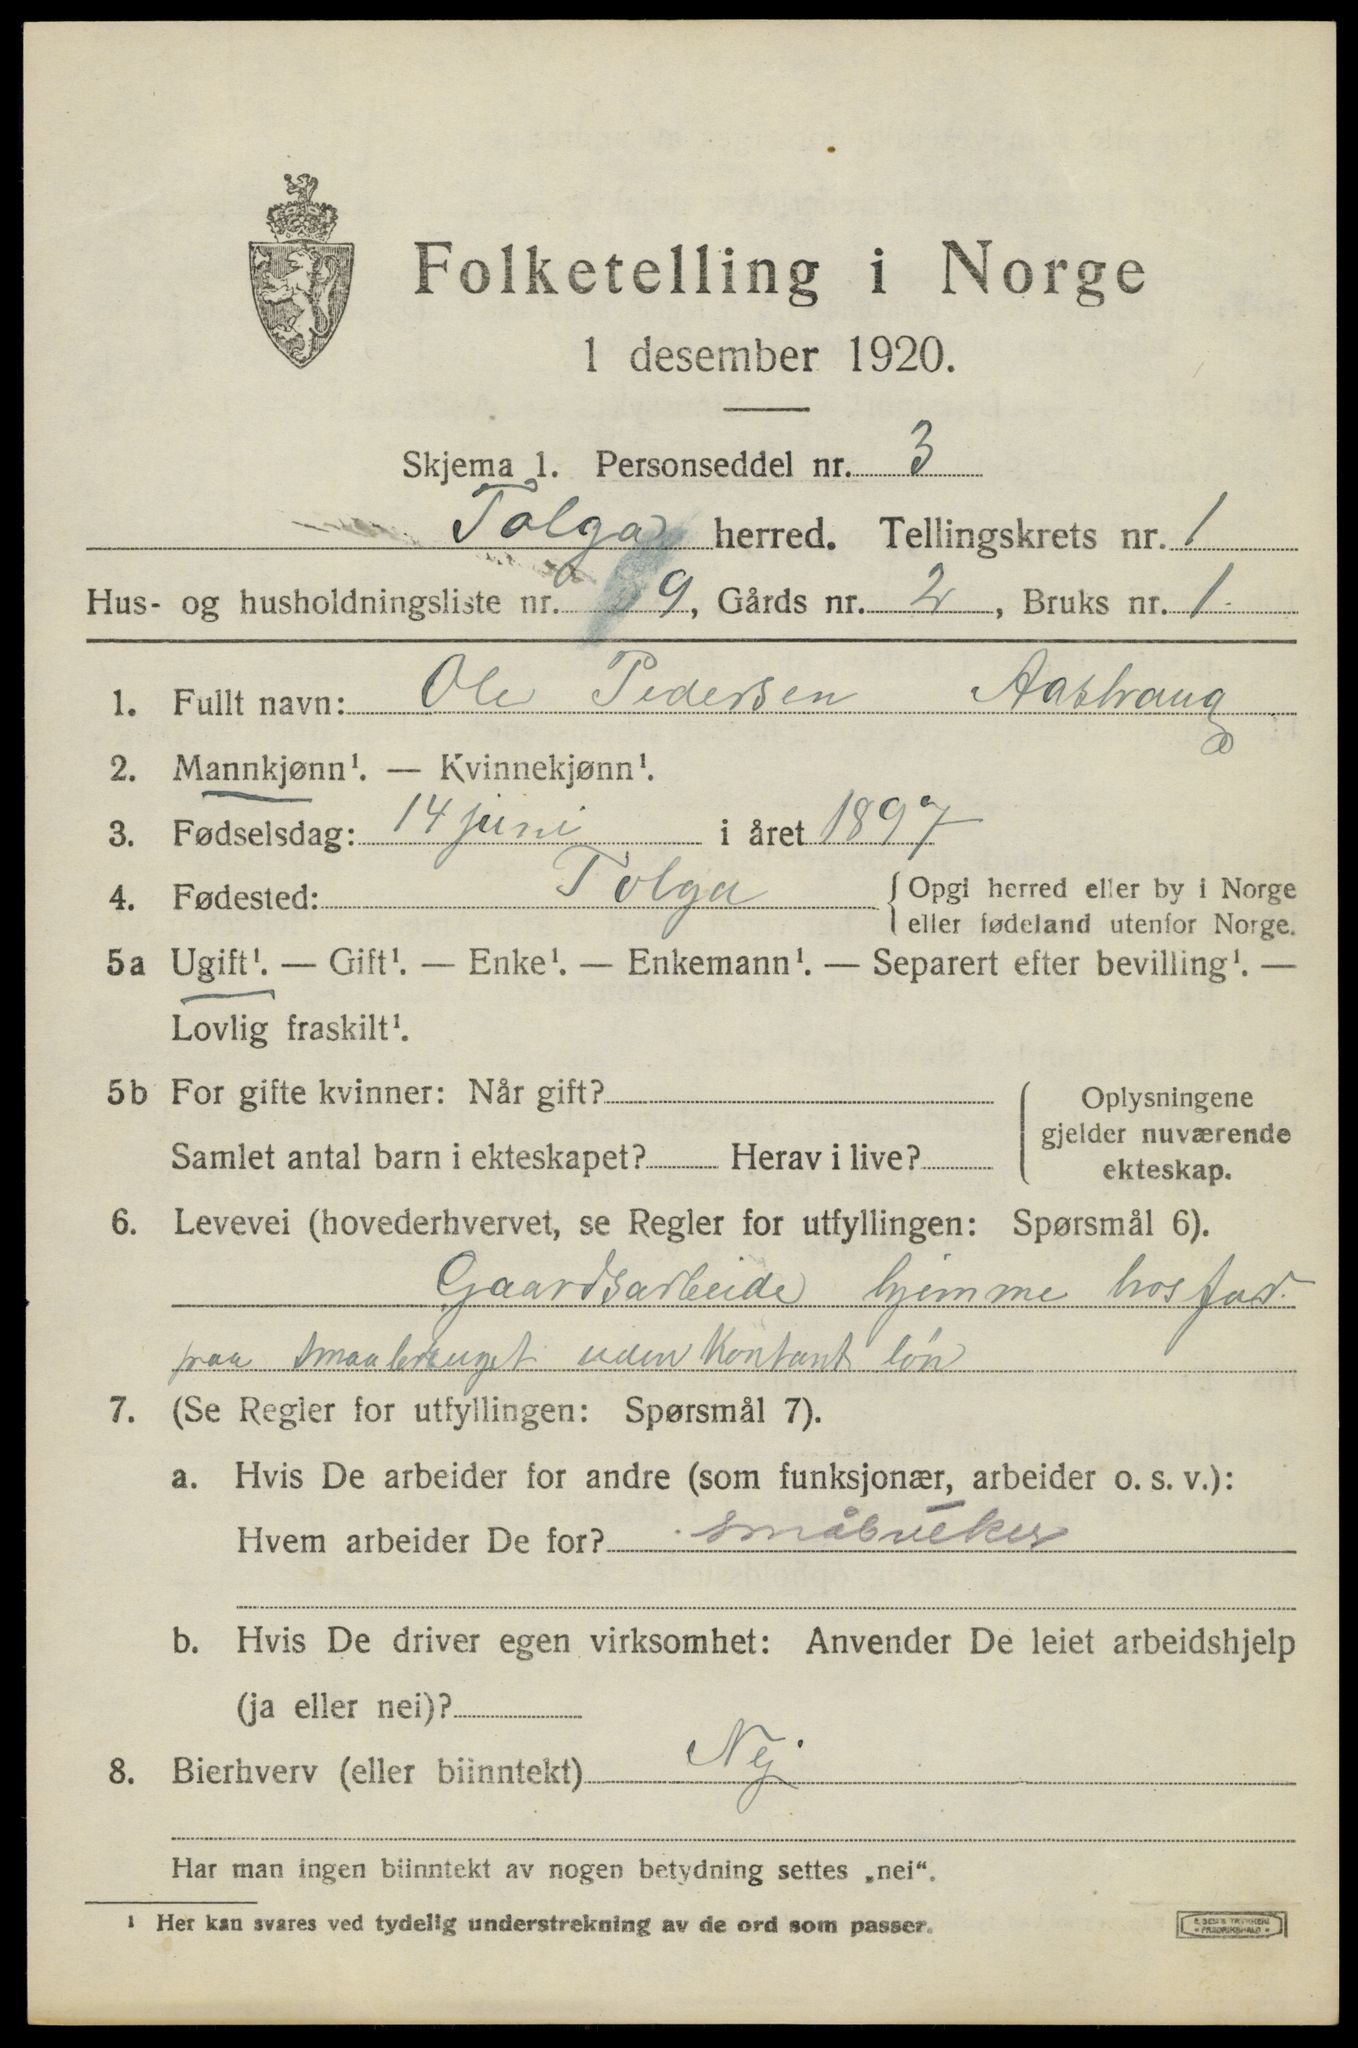 Folketelling i Norge
1 desember 1920.
Skjema 1. Personseddel nr. 3
Tolga herred. Tellingskrets nr. 1
Hus- og husholdningsliste nr. 9, Gårds nr. 2, Bruks nr. 1.
1. Fullt navn: Ole Pedersen Aastraug
2. Mannkjønn¹. — Kvinnekjønn¹.
3. Fødselsdag: 14 juni i året 1897
4. Fødested: Tolga { Opgi herred eller by i Norge
eller fødeland utenfor Norge.
5a Ugift¹. — Gift¹. — Enke¹. — Enkemann¹. — Separert efter bevilling¹. —
Lovlig fraskilt¹.
5b For gifte kvinner: Når gift?
Samlet antal barn i ekteskapet? Herav i live?
Oplysningene
gjelder nuværende
ekteskap.
6. Levevei (hovederhvervet, se Regler for utfyllingen: Spørsmål 6).
Gaardsarbeide hjemme hos far
paa smaabruget uden kontant løn
7. (Se Regler for utfyllingen: Spørsmål 7).
a. Hvis De arbeider for andre (som funksjonær, arbeider o. s. v.):
Hvem arbeider De for? småbruker
b. Hvis De driver egen virksomhet: Anvender De leiet arbeidshjelp
(ja eller nei)?
8. Bierhverv (eller biinntekt) Nej
Har man ingen biinntekt av nogen betydning settes „nei“.
¹ Her kan svares ved tydelig understrekning av de ord som passer.